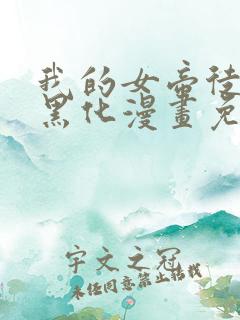 我的女帝徒
黑化漫畫免
宇文之冠
未经同意禁止转载